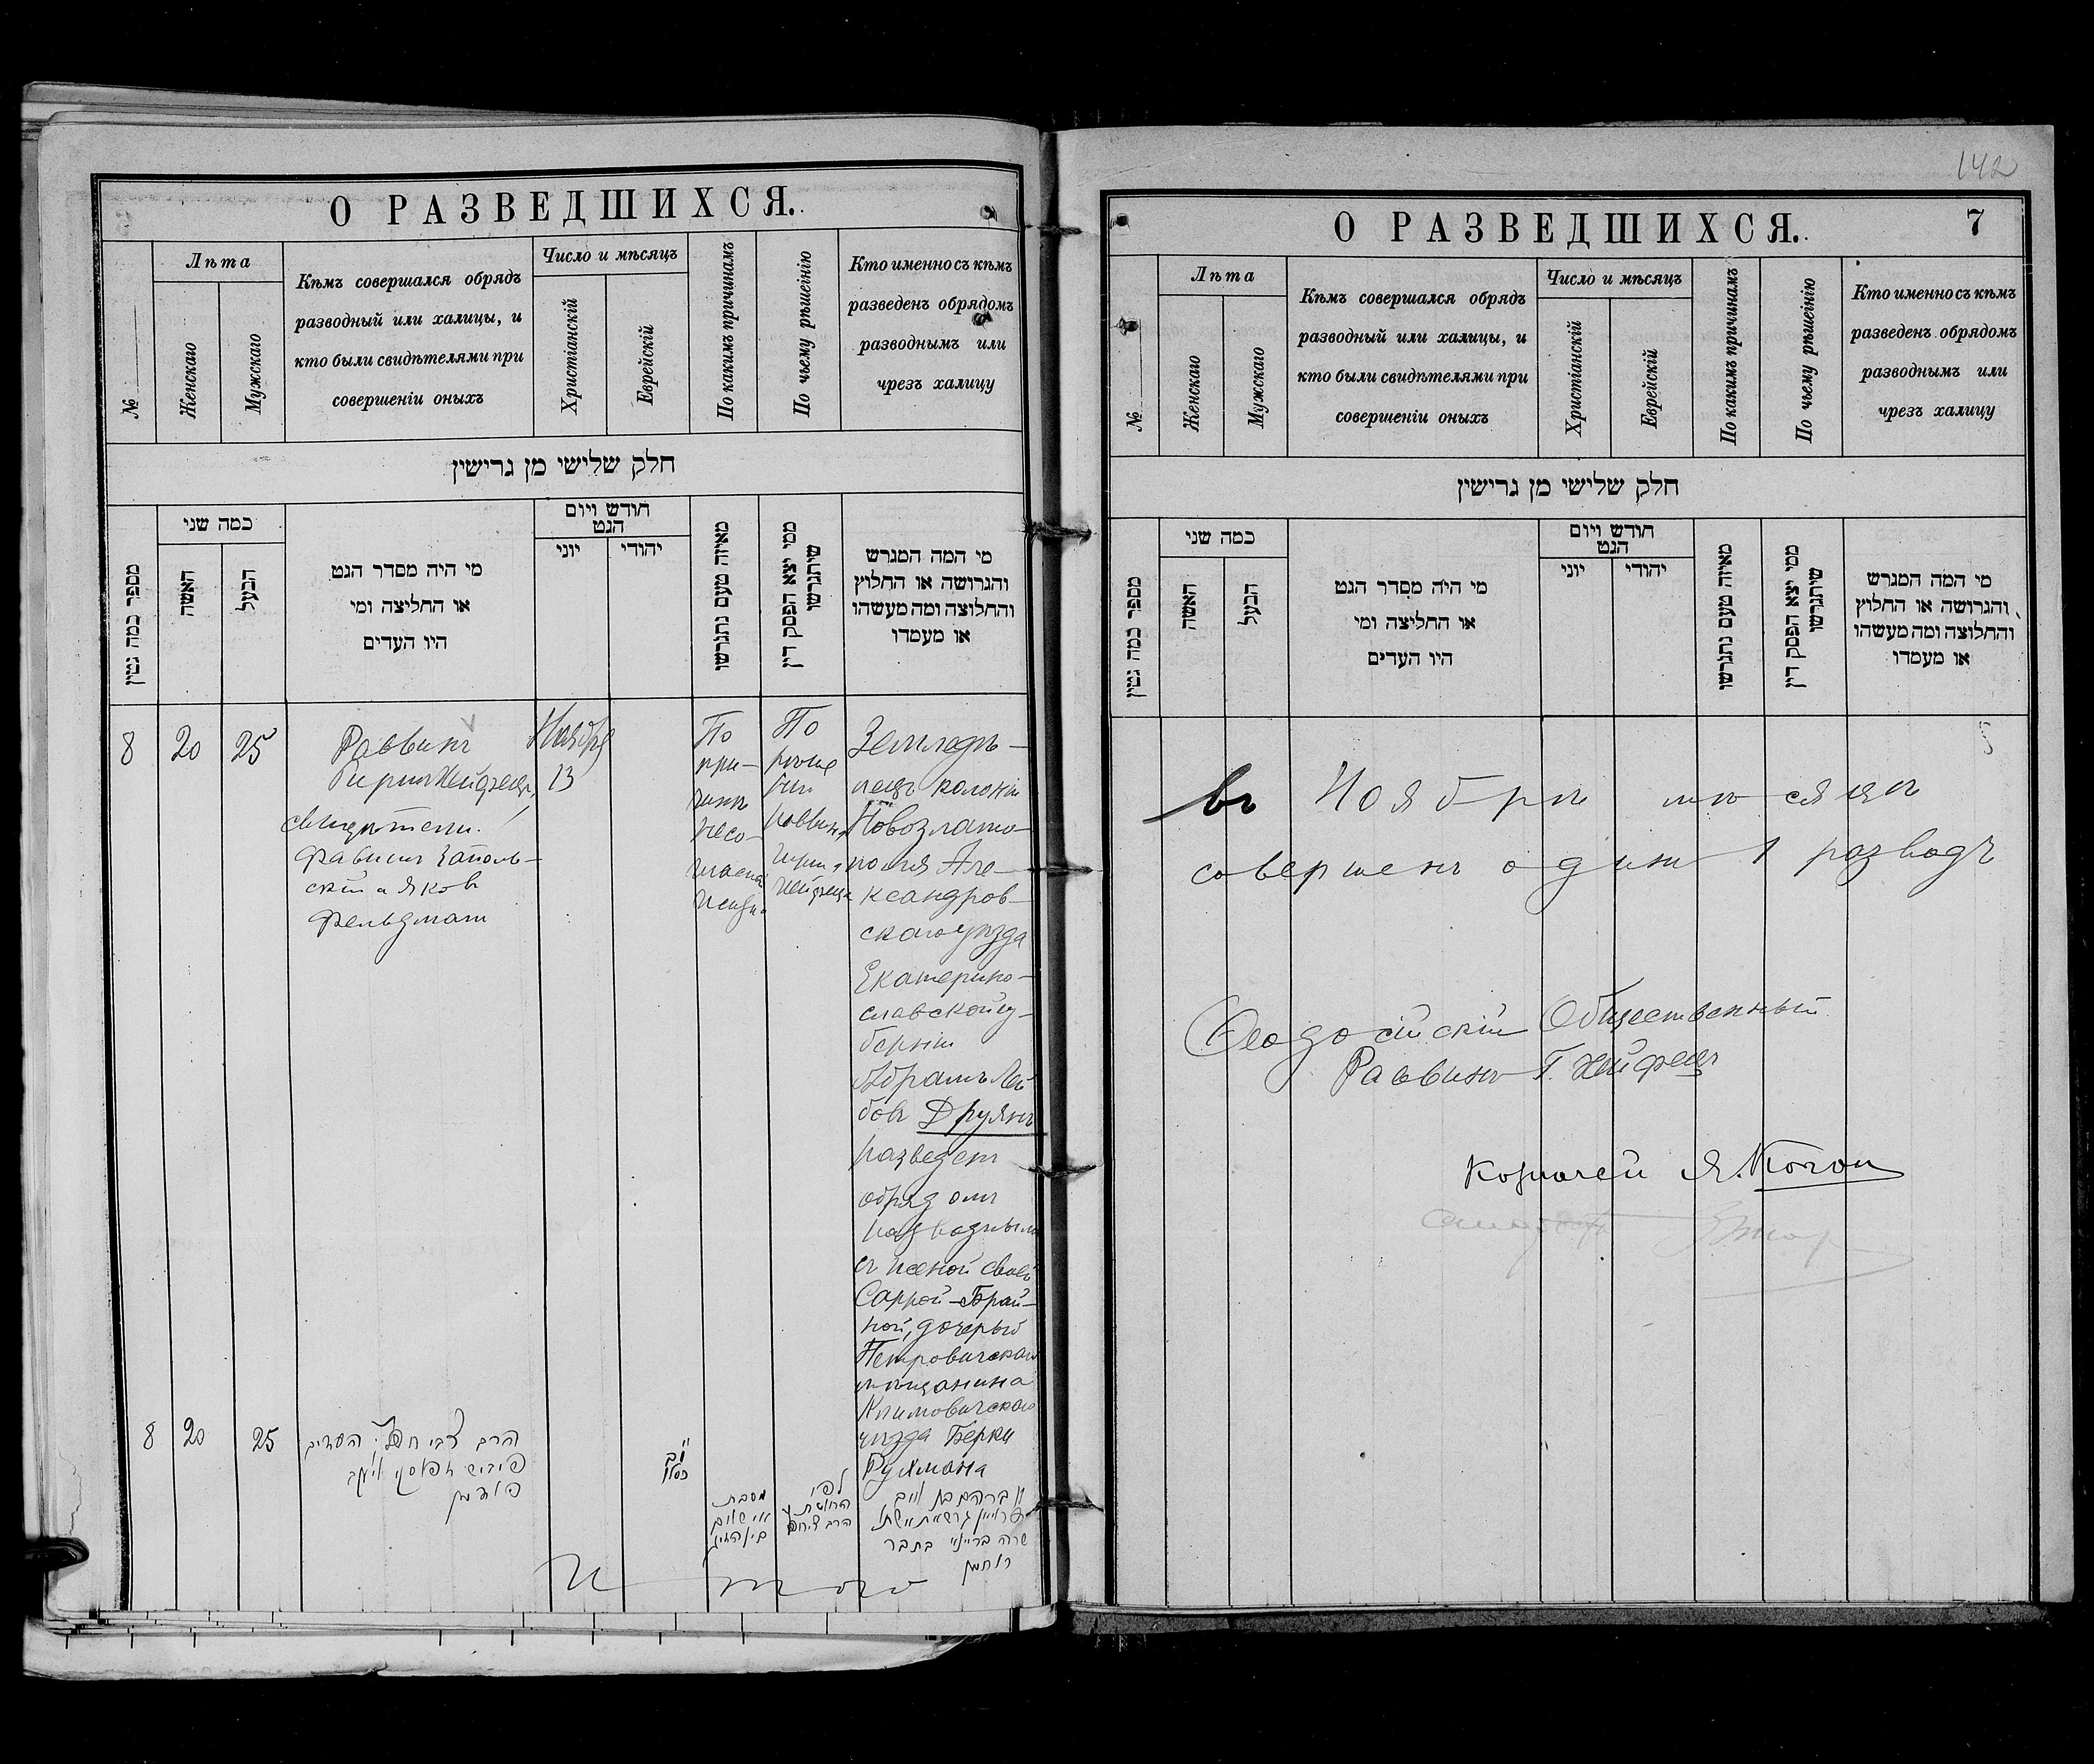 О РАЗВЕДШИХСЯ.
№
Лѣта
Женскаго
Мужскаго
Кѣмъ совершался обрядъ
разводный или халицы, и
кто были свидѣтелями при
совершеніи оныхъ
Число и мѣсяцъ
Христіанскій
Еврейскій
По какимъ причинамъ
По чьему рѣшенію
Кто именно съ кѣмъ
разведенъ обрядомъ
разводнымъ или
чрезъ халицу
חלק שלישי מן גרישין
מספר כמה גטין
כמה שני
האשה
הבעל
מי היה מסדר הגט
או החליצה ומי
היו העדים
חודש ויום
הגט
יוני
יהודי
מאיזה טעם נתגרשו
ממי יצא הפסק דין
שיתגרשו
מי המה המגרש
והגרושה או החלוץ
והחלוצה ומה מעשהו
או מעמדו
8
20
25
Раввинъ
Гирш Хейфецъ,
свидѣтели:
Файвишъ Заполь-
скій и Яковъ
Фельдманъ
Ноября
13
По
при-
чинѣ
несо-
гласна
жизни
По
рѣше
нію
раввина
Гирша
Хейфеца
Земледѣ-
лецъ колоніи
Новозлато-
поля Але-
ксандров-
скаго уѣзда
Екатерино-
славской гу-
берніи
Абрамъ Лей
бовъ Друянъ
разведенъ
обрядомъ
разводнымъ
съ женой своей
Саррой-Брай-
ной, дочерью
Петровичскаго
мѣщанина
Климовичскаго
уѣзда Берки
Рухмана
8
20
25
הרב צבי חפץ העדים
פייביש זאפאלסקי ויעקב
פעלדמן
כסלו
לפי
מסבת
אי שלום
אברהם בן לייב
דרויאן גרש את אשתו
שרה בריינא בת בער
רוחמן
142
О РАЗВЕДШИХСЯ.
7
№
Лѣта
Женскаго
Мужскаго
Кѣмъ совершался обрядъ
разводный или халицы, и
кто были свидѣтелями при
совершеніи оныхъ
Число и мѣсяцъ
Христіанскій
Еврейскій
По какимъ причинамъ
По чьему рѣшенію
Кто именно съ кѣмъ
разведенъ обрядомъ
разводнымъ или
чрезъ халицу
חלק שלישי מן גרישין
מספר כמה גטין
כמה שני
האשה
הבעל
מי היה מסדר הגט
או החליצה ומי
היו העדים
חודש ויום
הגט
יוני
יהודי
מאיזה טעם נתגרשו
ממי יצא הפסק דין
שיתגרשו
מי המה המגרש
והגרושה או החלוץ
והחלוצה ומה מעשהו
או מעמדו
въ Ноябрѣ мѣсяцѣ
совершенъ одинъ 1 разводъ
Ѳеодосійскій Общественный
Раввинъ Г. Хейфецъ
Казначей Я. Коган